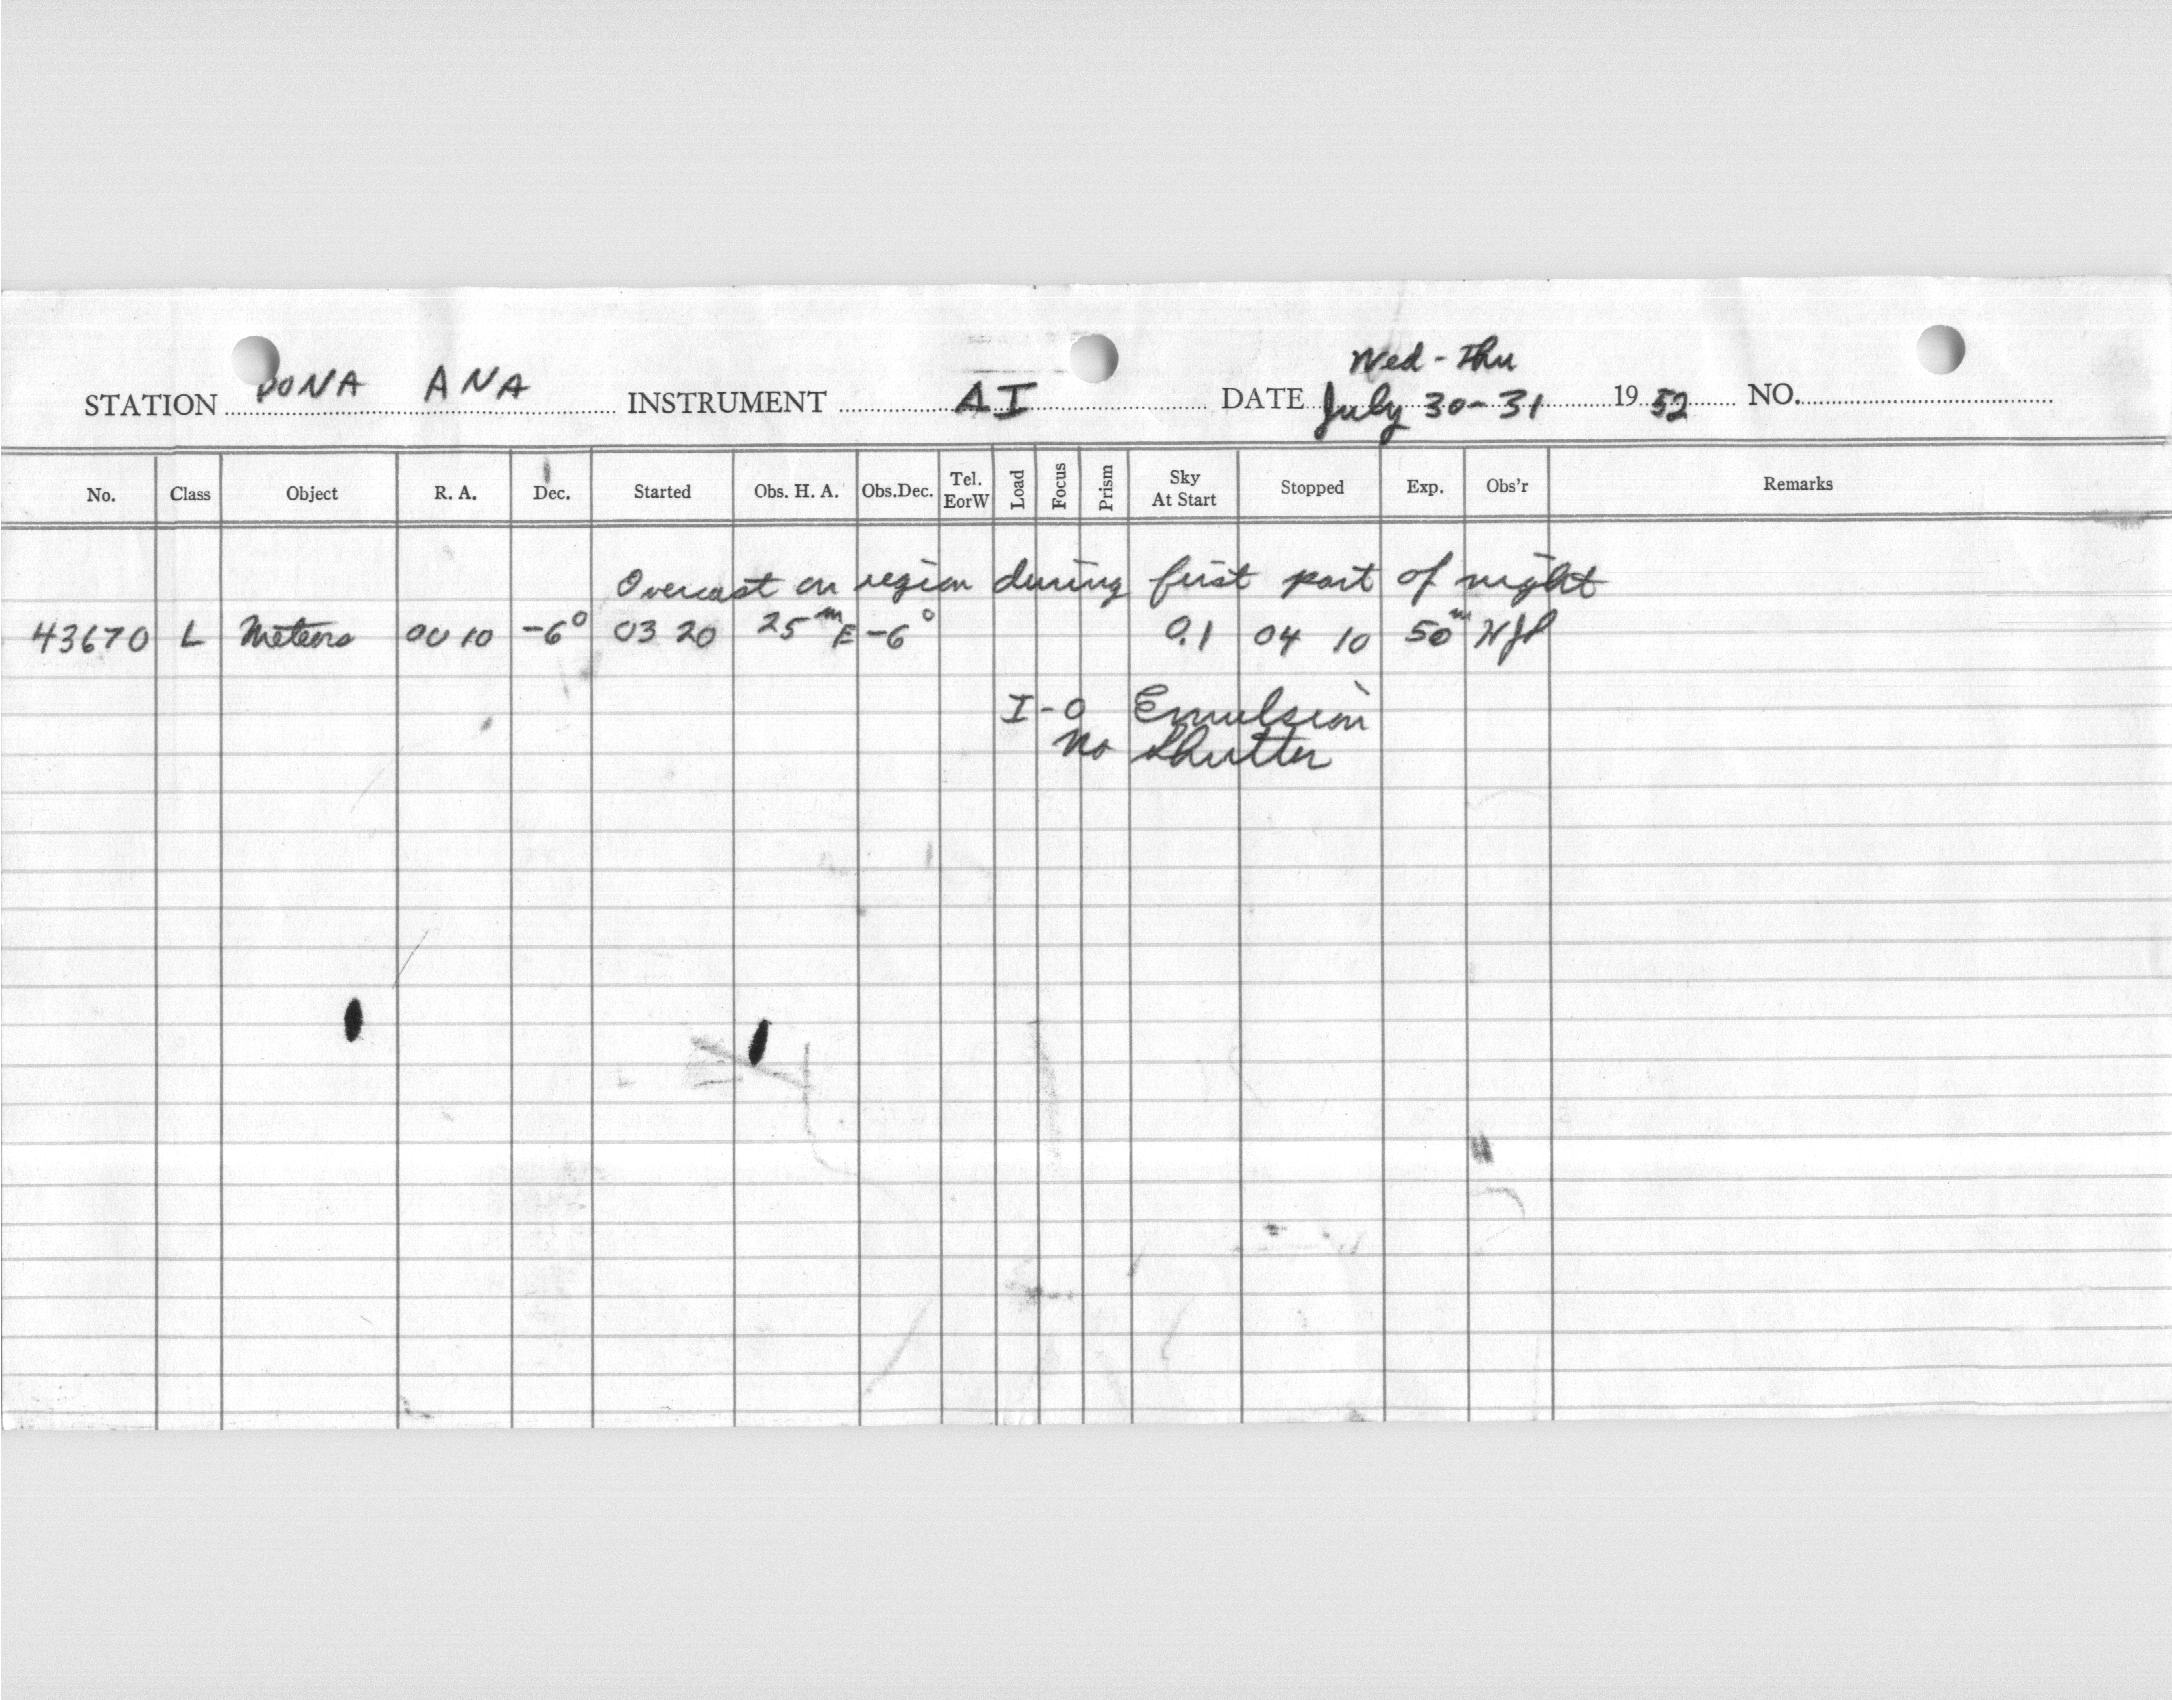 Wed - Thu
STATION DONA ANA INSTRUMENT AI DATE July 30-31 1952 NO.
No. Class Object R. A. Dec. Started Obs. H. A. Obs.Dec. Tel. EorW Load Focus Prism Sky At Start Stopped Exp. Obs'r Remarks
Overcast on region during first part of night
43670 L Meteors 00 10 -6° 03 20 25ᵐE -6° 0.1 04 10 50ᵐ
I-O Emulsion
No Shutter